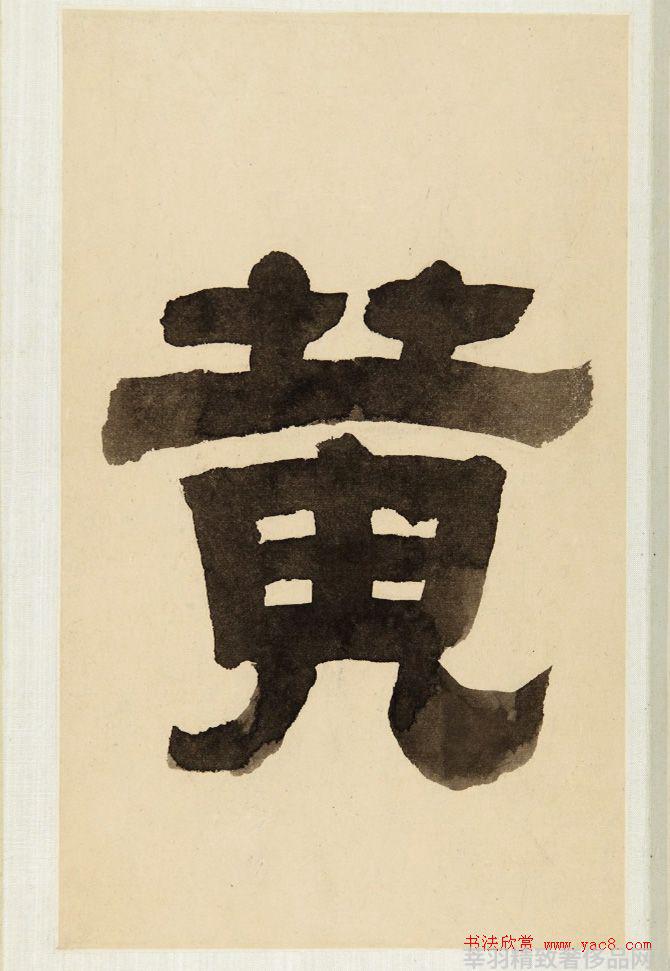 黄
书法欣赏 www.yac8.com
幸羽精致奢侈品网